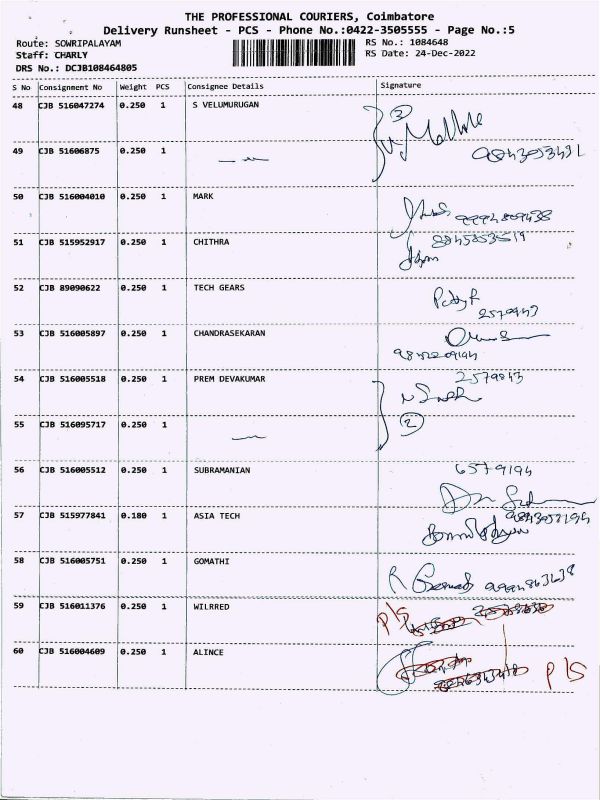 THE PROFESSIONAL COURIERS, Coimbatore
Delivery Runsheet - PCS - Phone No.:0422-3505555 - Page No.:5
Route: SOWRIPALAYAM RS No.: 1084648
Staff: CHARLY RS Date: 24-Dec-2022
DRS No.: DCJB108464805
S No Consignment No Weight PCS Consignee Details Signature
48 CJB 516047274 0.250 1 S VELUMURUGAN 3
49 CJB 51606875 0.250 1
50 CJB 516004010 0.250 1 MARK
51 CJB 515952917 0.250 1 CHITHRA
52 CJB 89090622 0.250 1 TECH GEARS
2579943
53 CJB 516005897 0.250 1 CHANDRASEKARAN
54 CJB 516005518 0.250 1 PREM DEVAKUMAR 2579843
55 CJB 516095717 0.250 1 2
56 CJB 516005512 0.250 1 SUBRAMANIAN 6579194
57 CJB 515977841 0.180 1 ASIA TECH
58 CJB 516005751 0.250 1 GOMATHI
59 CJB 516011376 0.250 1 WILRRED P/S
60 CJB 516004609 0.250 1 ALINCE P/S